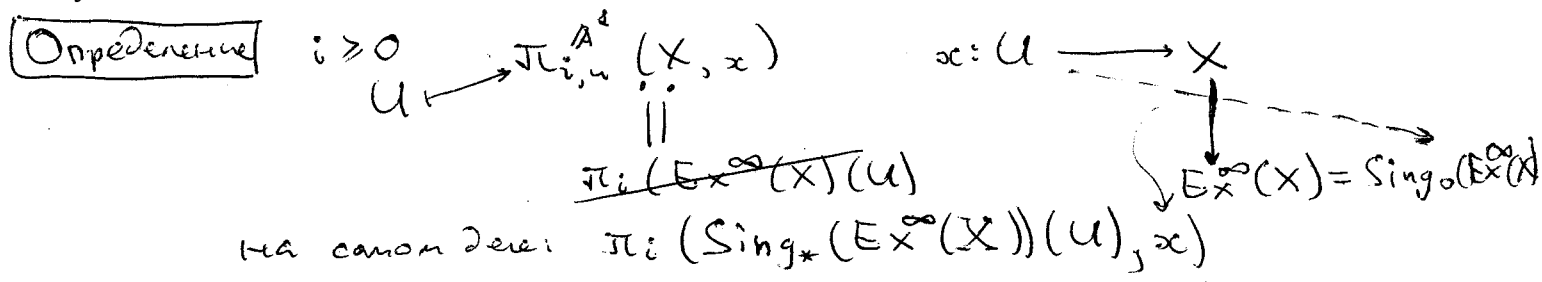 Определение i ≥ 0 x: U → X
U ↦ π_{i,u}^{𝔸¹} (X, x)
:||
π_i(Ex^∞(X)(U)
Ex^∞(X) = Sing_0(Ex^∞(X)
на самом деле: π_i (Sing_*(Ex^∞(X))(U), x)